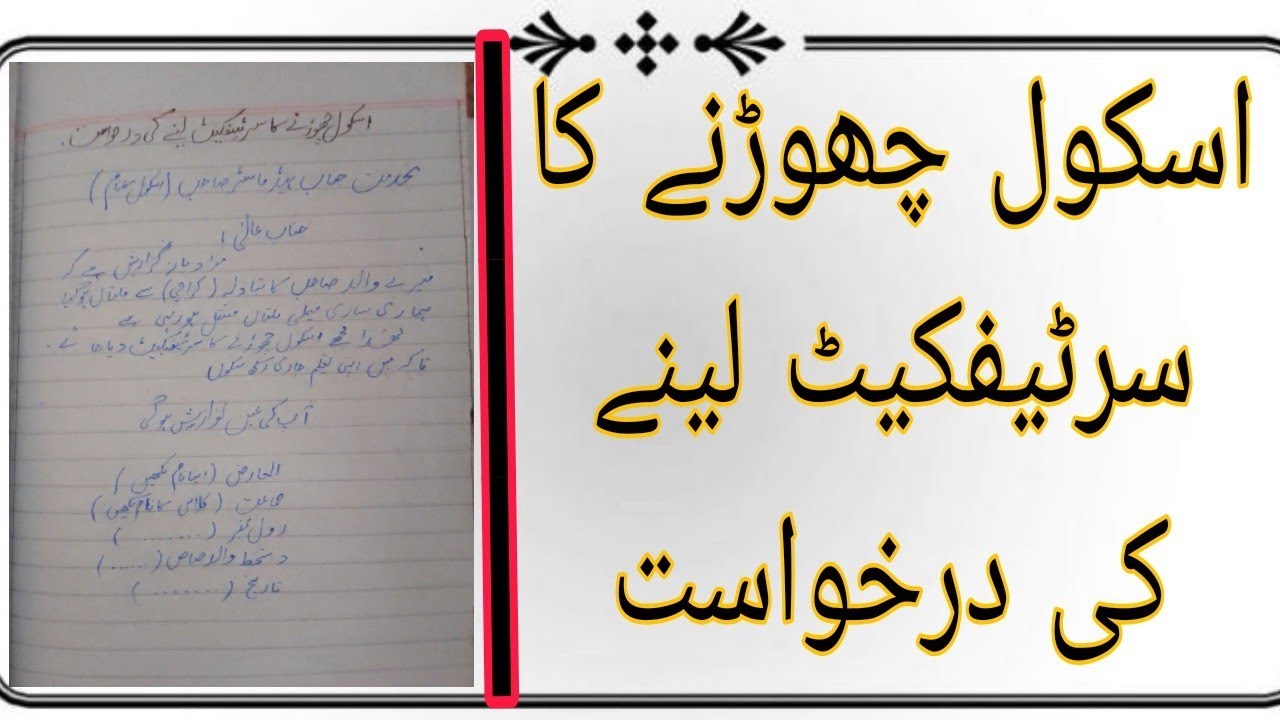 اسکول چھوڑنے کا
سرٹیفکیٹ لینے
کی درخواست
اسکول چھوڑنے کا سرٹیفکیٹ لینے کی درخواست۔
بخدمت جناب ہیڈ ماسٹر صاحب (اسکول کا نام)
جناب عالی!
مؤدبانہ گزارش ہے کہ
میرے والد صاحب کا تبادلہ (کراچی) سے ملتان ہوگیا
ہماری ساری فیملی ملتان منتقل ہورہی ہے
لہٰذا مجھے اسکول چھوڑنے کا سرٹیفکیٹ دیا جائے۔
تاکہ میں اپنی تعلیم جاری رکھ سکوں
آپ کی عین نوازش ہوگی
العارض (اپنا نام لکھیں)
جماعت (کلاس کا نام لکھیں)
رول نمبر (........)
دستخط والد صاحب (......)
تاریخ (........)